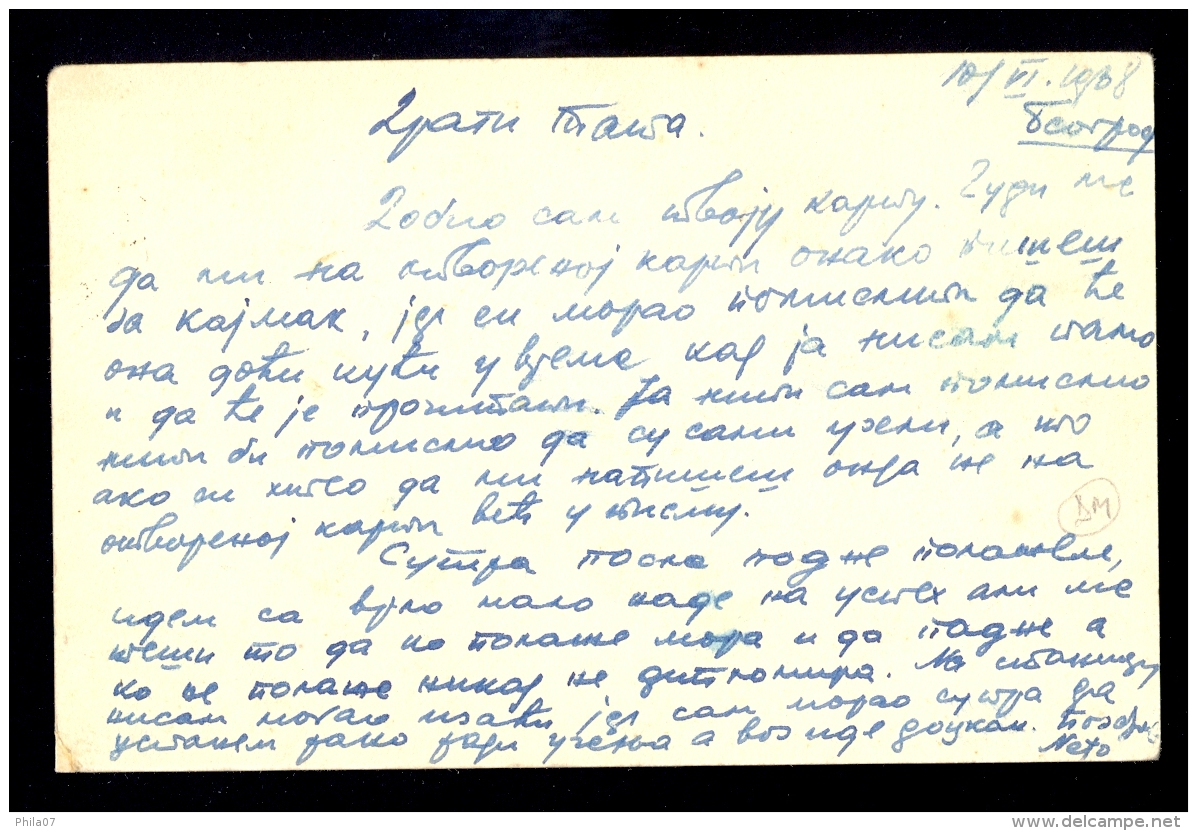 10/VI. 1938
Београд
Драги Тата.
Добио сам твоју карту. Чуди ме
да ми на отвореној карти онако пишеш
за кајмак, јер си морао помислити да ће
она доћи кући у време кад ја нисам тамо
и да ће је прочитати. Ја нити сам помислио
нити би помислио да су сами узели, а што
ако си хтео да ми напишеш онда не на
отвореној карти већ у писму.
DM
Сутра после подне полажем,
идем са врло мало наде на успех али ме
теши то да ко полаже мора и да падне а
ко не полаже никад не дипломира. На станицу
нисам могао изаћи јер сам морао сутра да
устанем рано ради учења а воз иде доцкан. Поздрав
Neto
Phila07
delcampe.net